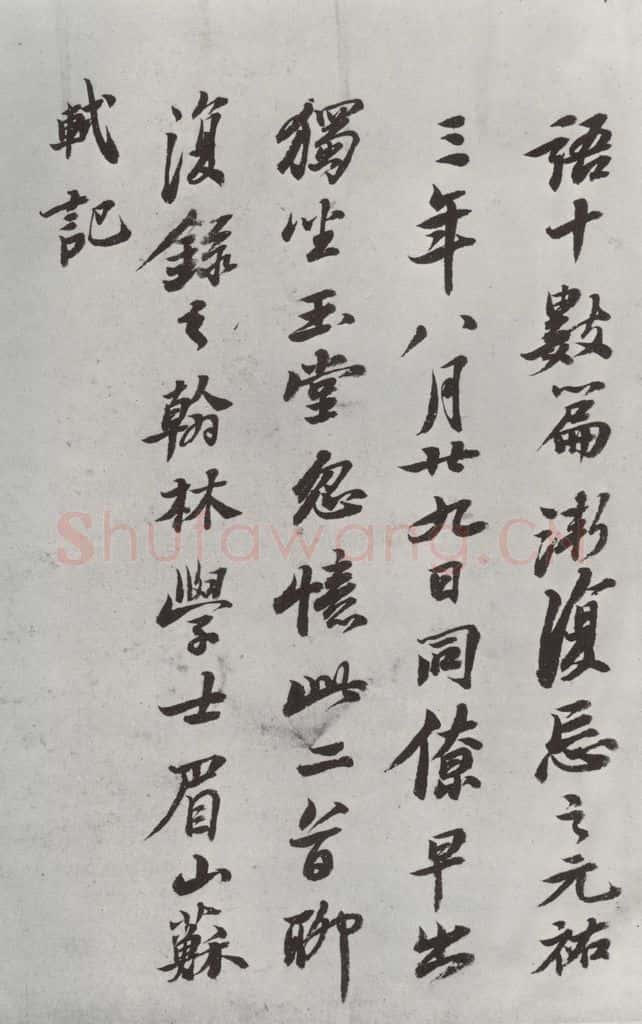 語十數篇漸復忘之元祐
三年八月廿九日同僚早出
獨坐玉堂忽憶此二首聊
復錄之翰林學士眉山蘇
軾記
Shufawang.CN